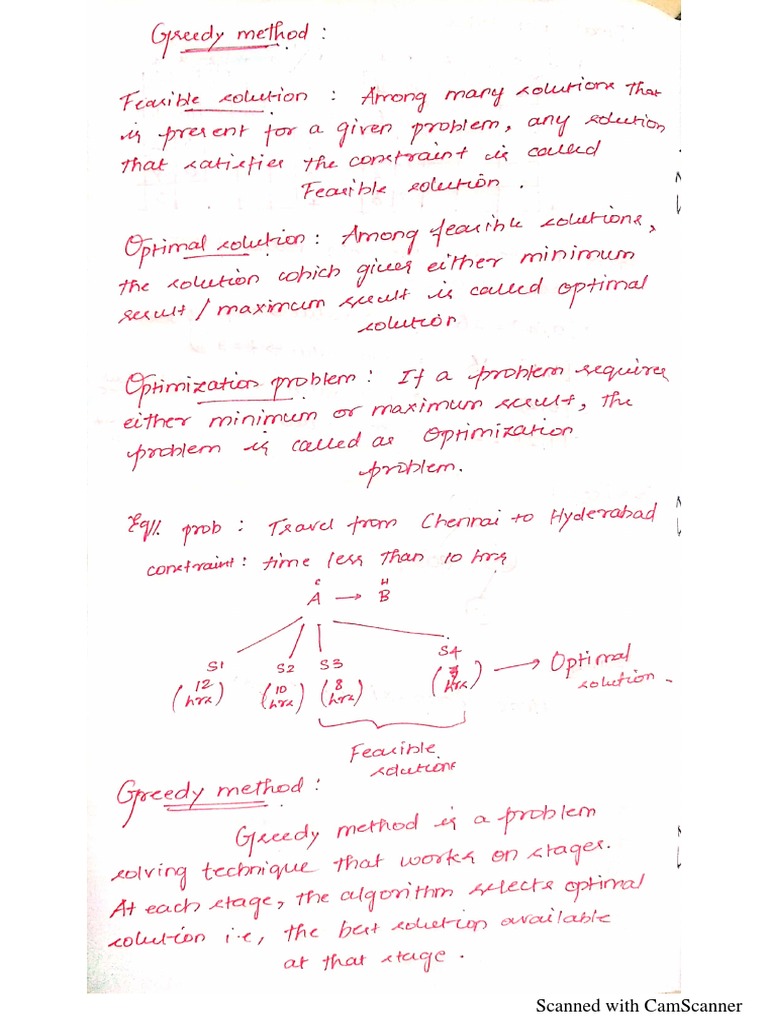 Greedy method :
Feasible solution : Among many solutions that
is present for a given problem, any solution
that satisfies the constraint is called
Feasible solution .
Optimal solution : Among feasible solutions,
the solution which gives either minimum
result / maximum result is called optimal
solution
Optimization problem : If a problem requires
either minimum or maximum result, the
problem is called as Optimization
problem.
Eg//. prob : Travel from Chennai to Hyderabad
constraint : time less than 10 hrs
C H
A → B
S1 S2 S3 S4
(12 hrs) (10 hrs) (8 hrs) ( hrs) → Optimal
solution .
Feasible
solutions
Greedy method :
Greedy method is a problem
solving technique that works on stages.
At each stage, the algorithm selects optimal
solution i.e, the best solution available
at that stage .
Scanned with CamScanner